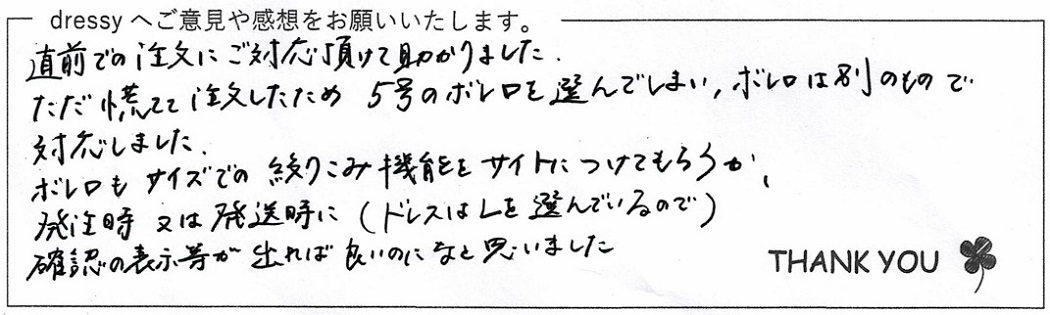 dressy へご意見や感想をお願いいたします。
直前での注文にご対応頂けて助かりました.
ただ慌てて注文したため 5号のボレロを選んでしまい,ボレロは別のもので
対応しました.
ボレロもサイズでの絞りこみ機能をサイトにつけてもらうか、
発注時又は発送時に(ドレスはLを選んでいるので)
確認の表示等が出れば良いのになと思いました
THANK YOU